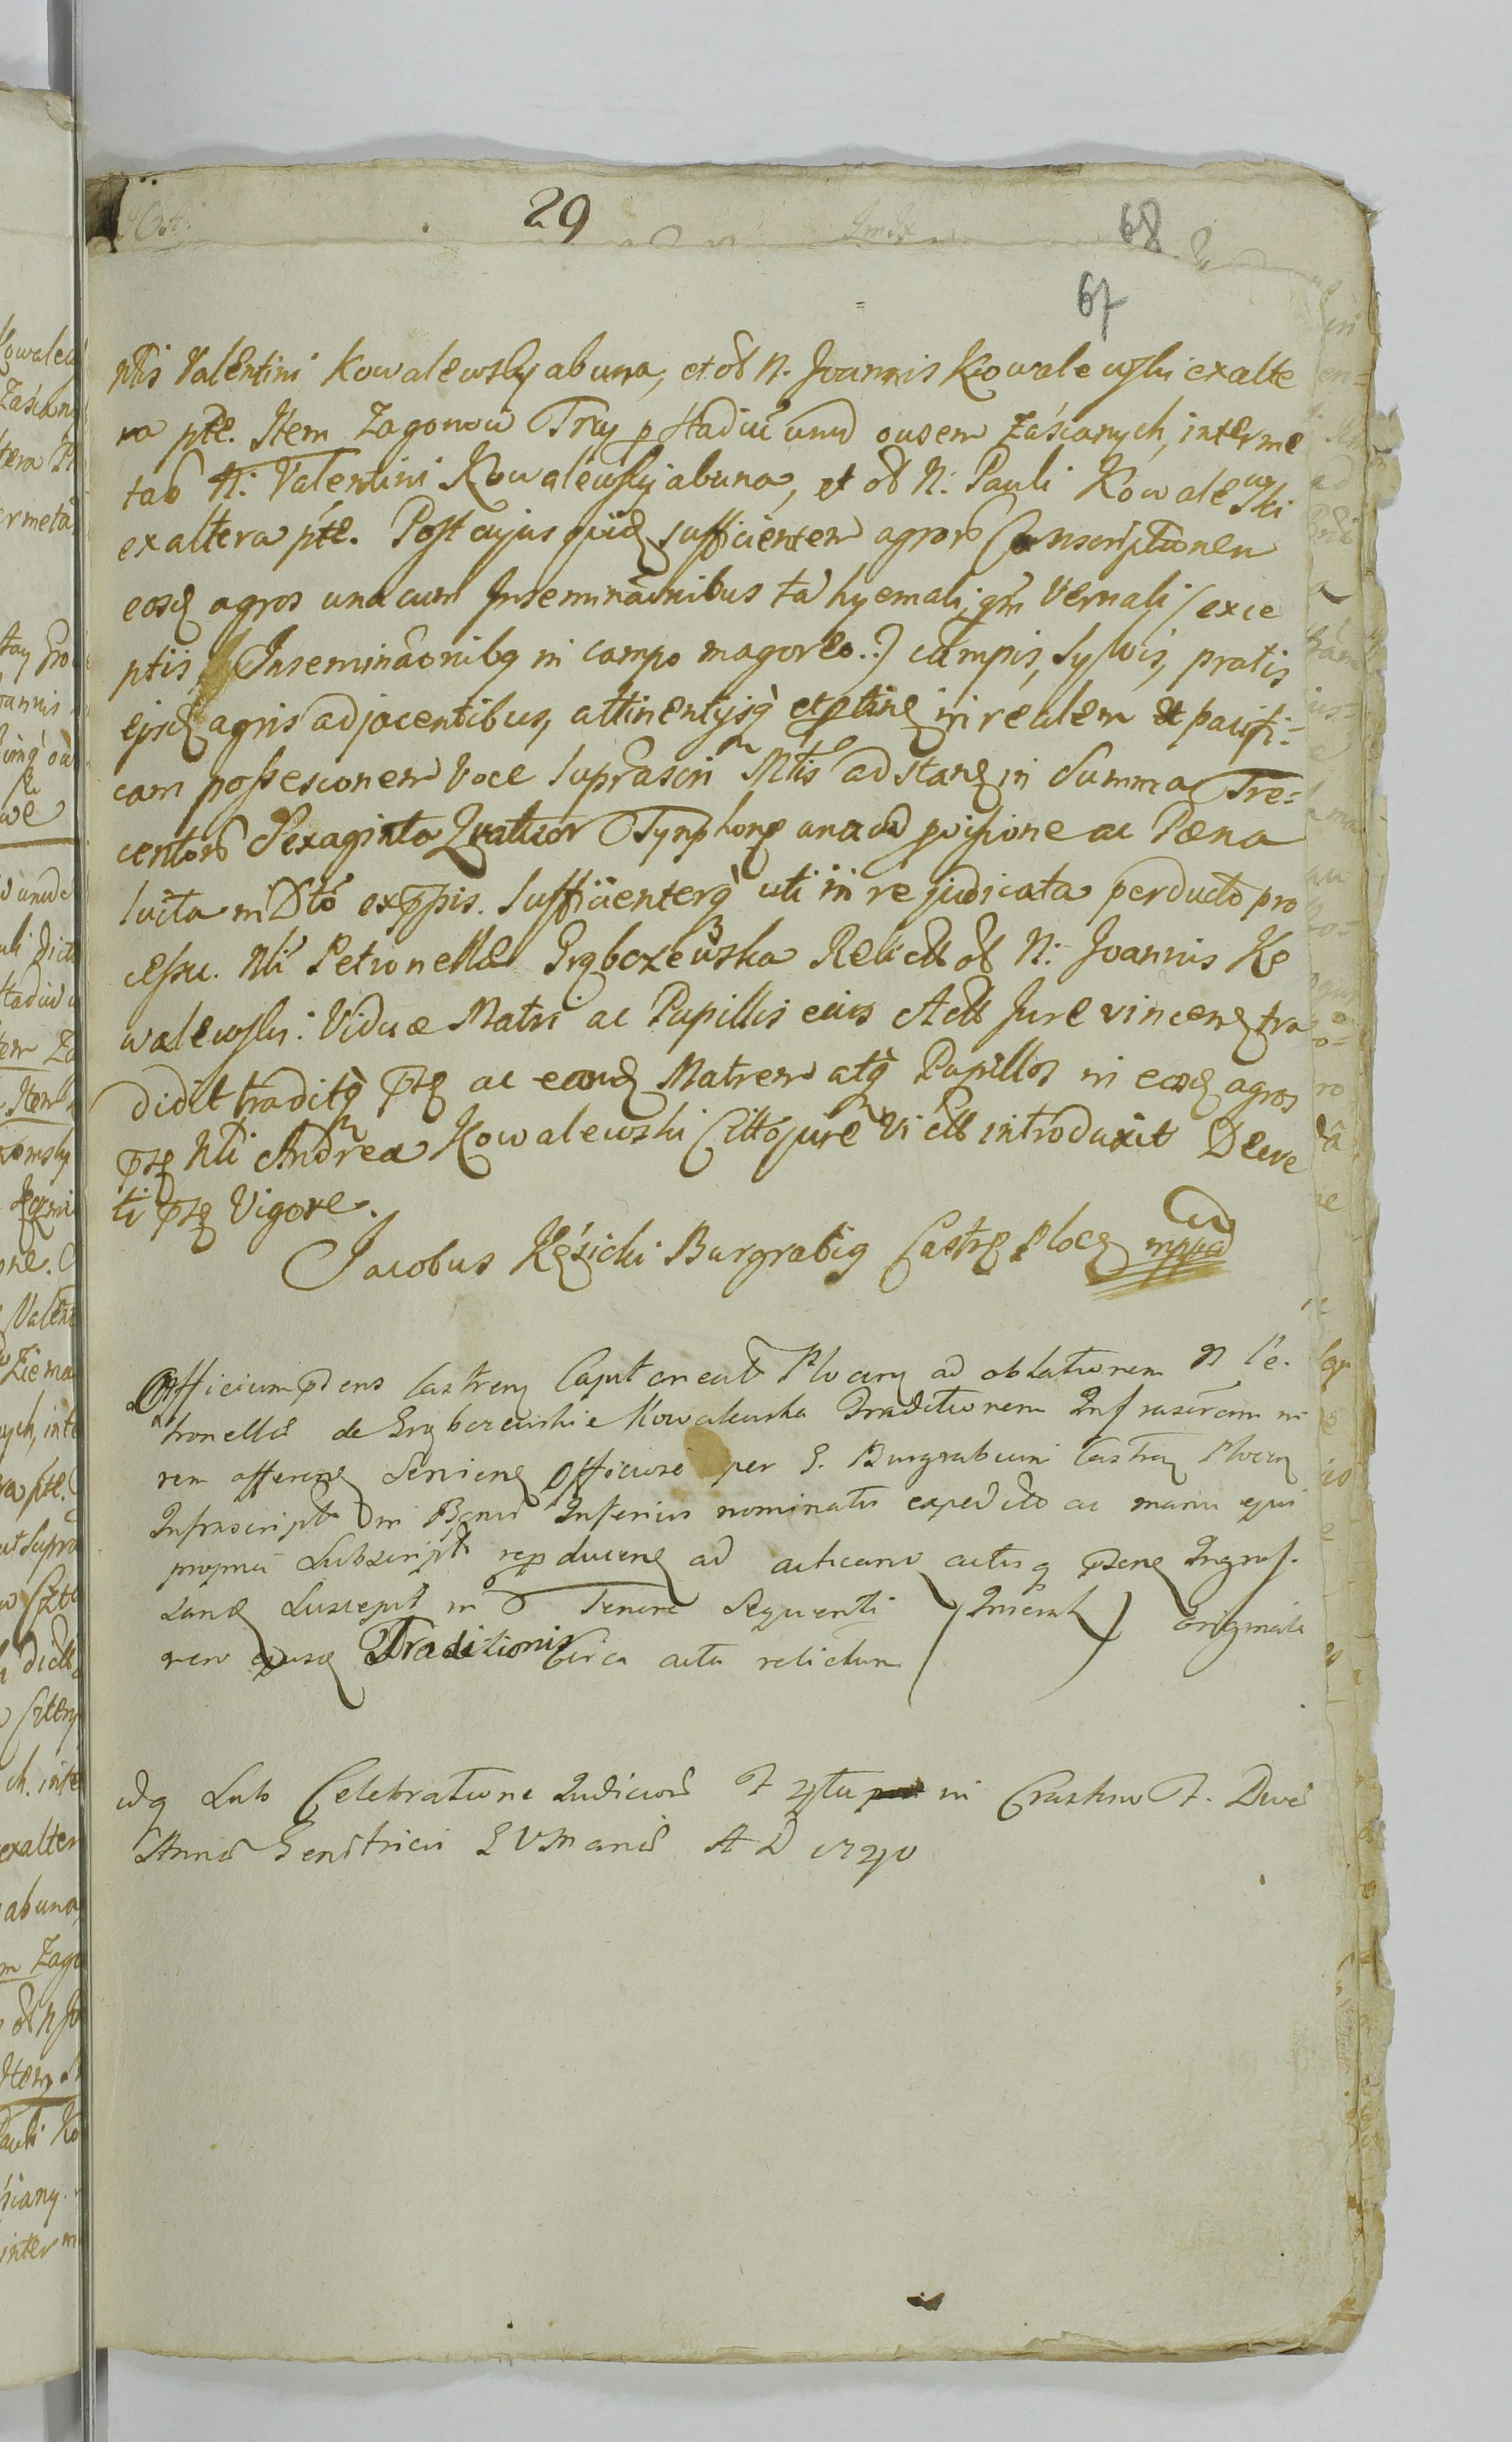 29
68
67
Nblis Valentini Kowalewsky ab una, et olb N. Joannis Kowalewski ex alte
ra pte. Item Zagonow Trzy p stadiu unu ousem Zásianych, interme
tas N: Valentini Kowalewsky ab una, et olb N: Pauli Kowalewski
ex altera pte. Post cujus quid sufficientem agror Conscriptionem
eosd agros una cum Inseminaonibus ta hyemali, qm Vernali (exce
ptis Inseminaonibq in campo magores.) campis, sylvis, pratis
ejsd agris adjacentibus, attinentijsq et ptinen in realem et pacifi=
cam possescionem Voce suprascri Mtis adstanen in Summa Tre=
centor Sexaginta Quatuor Tynphonr una cu pvisione ac Pæna
luita in Dto exppis. Sufficienterq uti in re judicata perducto pro
cessu. Nli Petronellæ Grąbczewska Relictæ olb N: Joannis Ko
walewski: Viduæ Matri ac Pupillis ejus Actt Jure vincen tra
didit traditq psen ac eand Matrem atq Pupillos in eosd agros
psen Nli Andrea Kowalewski Citto jure Victt introduxit Decre
ti psen Vigore.
Jacobus Kęsicki Burgrabiq Castr Plocen mppa
Officium pdens Castren Capitaneal Plocen ad oblationem N Pe.
tronellæ de Grąbczewskie Kowalewska Traditionem Infrascram in
rem offeren Servien Officiose per G. Burgrabium Castren Plocen
Infrascript in Bonis Inferius nominatis expedito ac manu ejus
propria Subscript reproducen ad acticand actisq psen Ingros.
sand Suscepit in Tenore Sequenti (Inserat) originale
vero ejusd Traditionis Circa acta relictum
Sub Celebratione Judicior in Crastino F. Divæ
Annæ Genitricis B V Mariæ A D